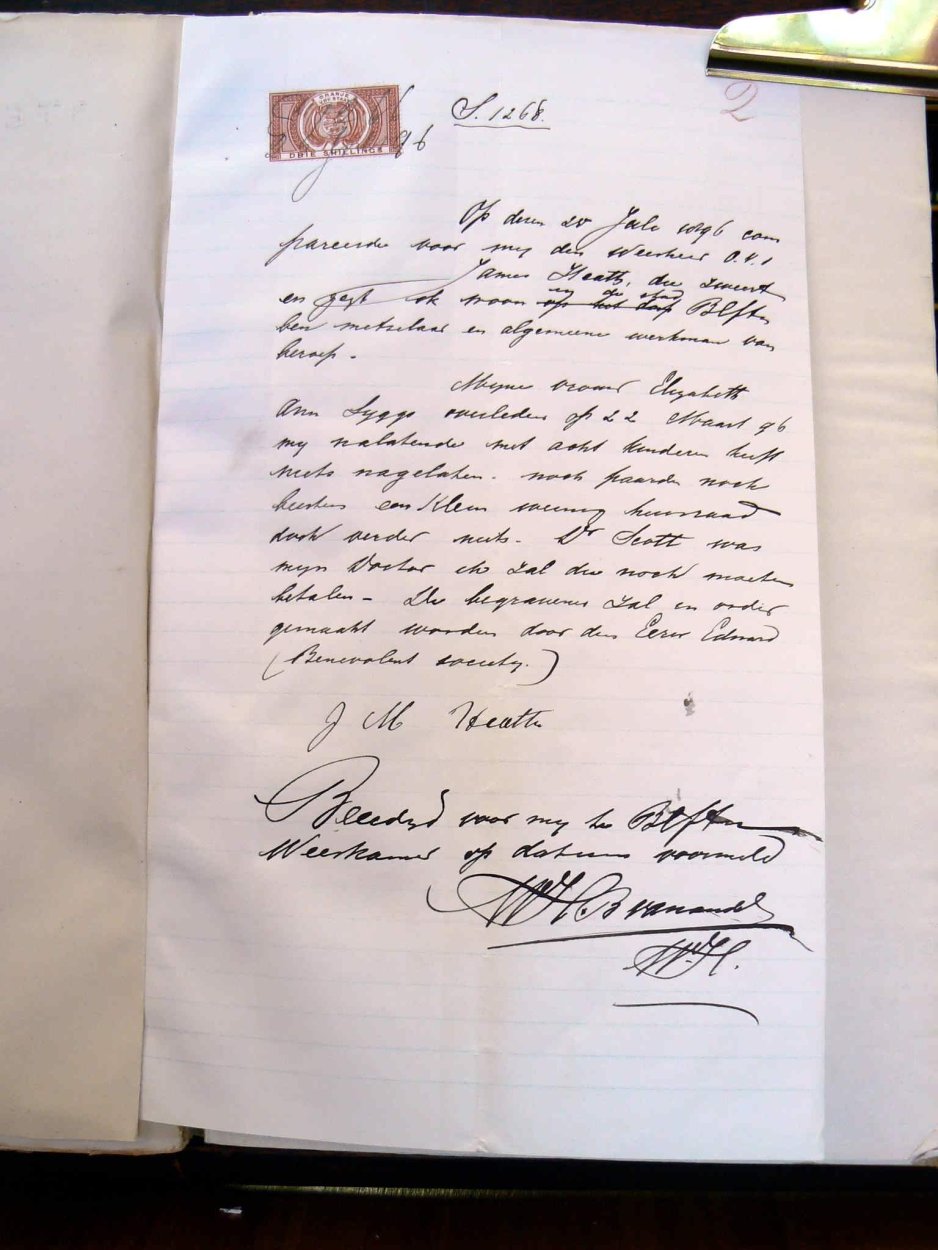 ORANJE
DRIE SHILLINGS
96
S. 1268.
2
Op dezen 20 Juli 1896 com
pareerde voor my den Weesheer O.V.S
James Heath, die zweert
en zegt ik woon in de stad Blftn
ben metselaar en algemeene werkman van
beroep.
Myne vrouw Elizabeth
Ann overleden op 22 Maart 96
my nalatende met acht kinderen heeft
niets nagelaten. noch paarden noch
beesten een klein weinig huisraad
doch verder niets. Dr Scott was
mijn Doctor ik zal die noch moeten
betalen - De begravenis zal in order
gemaakt worden door den Eerw Edward
(Benevolent society.)
J M Heath
Beedigd voor my te Blftn
Weeskamer op datum voormeld
W.H.